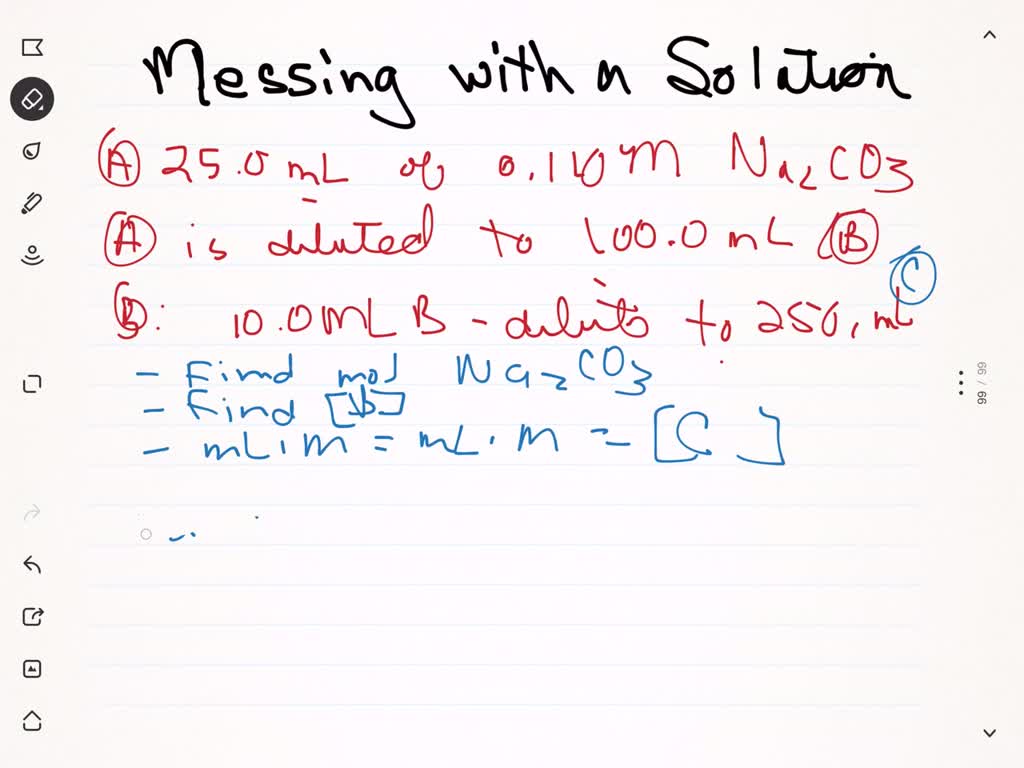 Messing with a Solution
(A) 25.0 mL of 0.110 M Na₂CO₃
(A) is diluted to 100.0 mL (B)
(C)
(B): 10.0 mL B - dilute to 250. mL
- Find mol Na₂CO₃
- Find [B]
- mL · M = mL · M = [C]
66 / 66